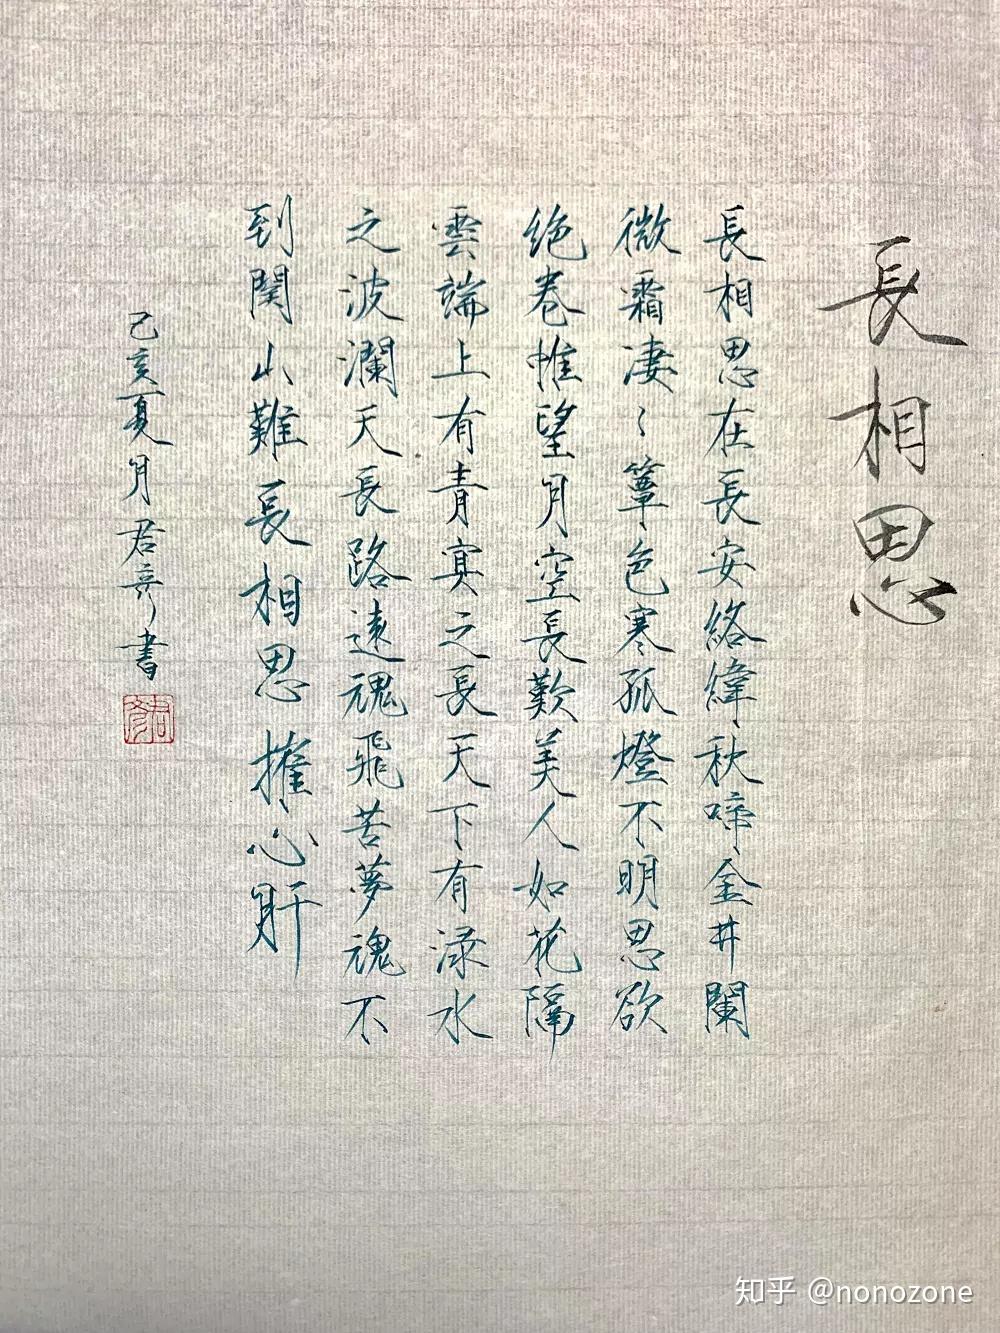 長相思
長相思在長安絡緯秋啼金井闌
微霜凄〻簟色寒孤燈不明思欲
绝卷帷望月空長歎美人如花隔
雲端上有青冥之長天下有渌水
之波瀾天長路遠魂飛苦夢魂不
到関山難長相思摧心肝
己亥夏月君彦書
君彦
知乎 @nonozone